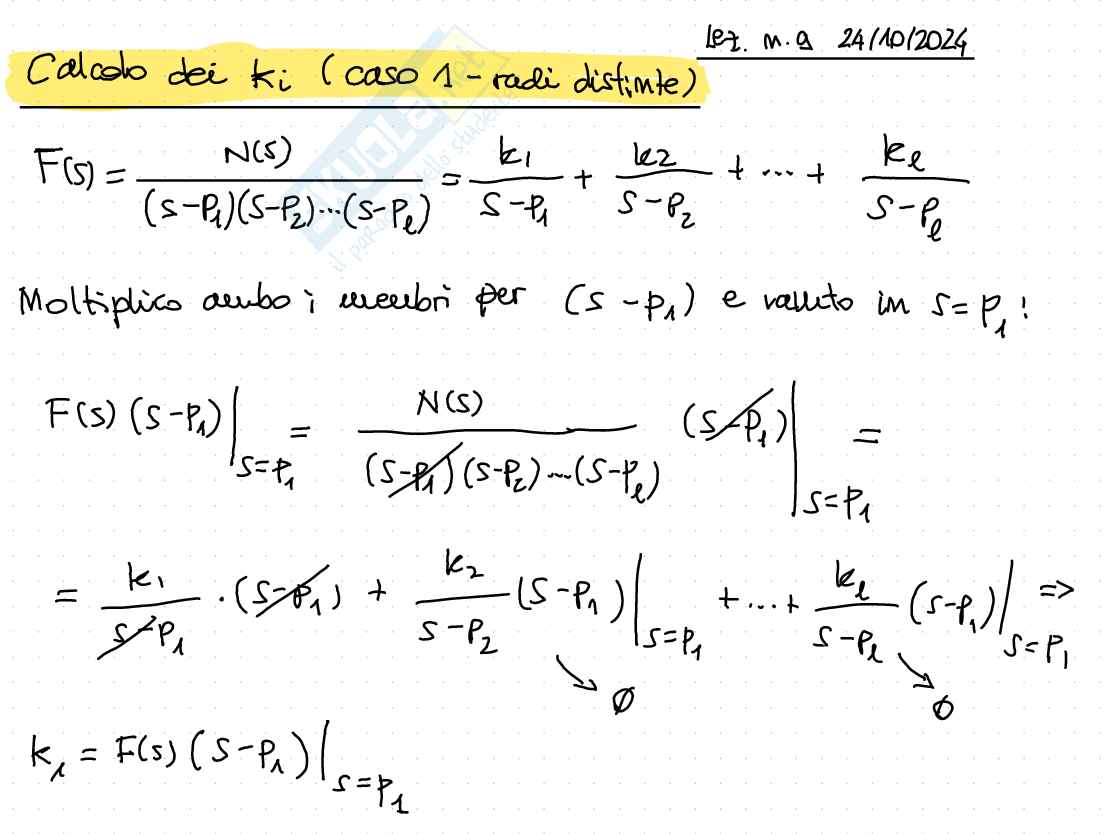 Lez. n. 9 24/10/2024
Calcolo dei ki (caso 1 - radici distinte)
F(s) = N(s) / (s-p₁)(s-p₂)...(s-pℓ) = k₁ / s-p₁ + k₂ / s-p₂ + ... + kℓ / s-pℓ
Moltiplico ambo i membri per (s - p₁) e valuto in s = p₁:
F(s) (s-p₁)|s=p₁ = N(s) / (s-p₁)(s-p₂)...(s-pℓ) (s-p₁)|s=p₁ =
= k₁ / s-p₁ · (s-p₁) + k₂ / s-p₂ (s-p₁)|s=p₁ + ... + kℓ / s-pℓ (s-p₁)|s=p₁ =>
↘ 0 ↘ 0
k₁ = F(s) (s-p₁)|s=p₁
SKUOLA.net
il paradiso dello studente